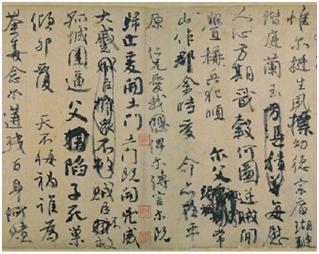 惟爾挺生夙標幼德宗廟瑚璉
階庭蘭玉每慰
人心方期戩穀何圖逆賊閒
釁稱兵犯順爾父竭誠常
山作郡余時受命亦在平
原仁兄愛我俾爾傳言爾既
歸止爰開土門土門既開凶威
大蹙賊臣不救
孤城圍逼父陷子死巢
傾卵覆天不悔禍誰為
荼毒念爾遘殘百身何贖